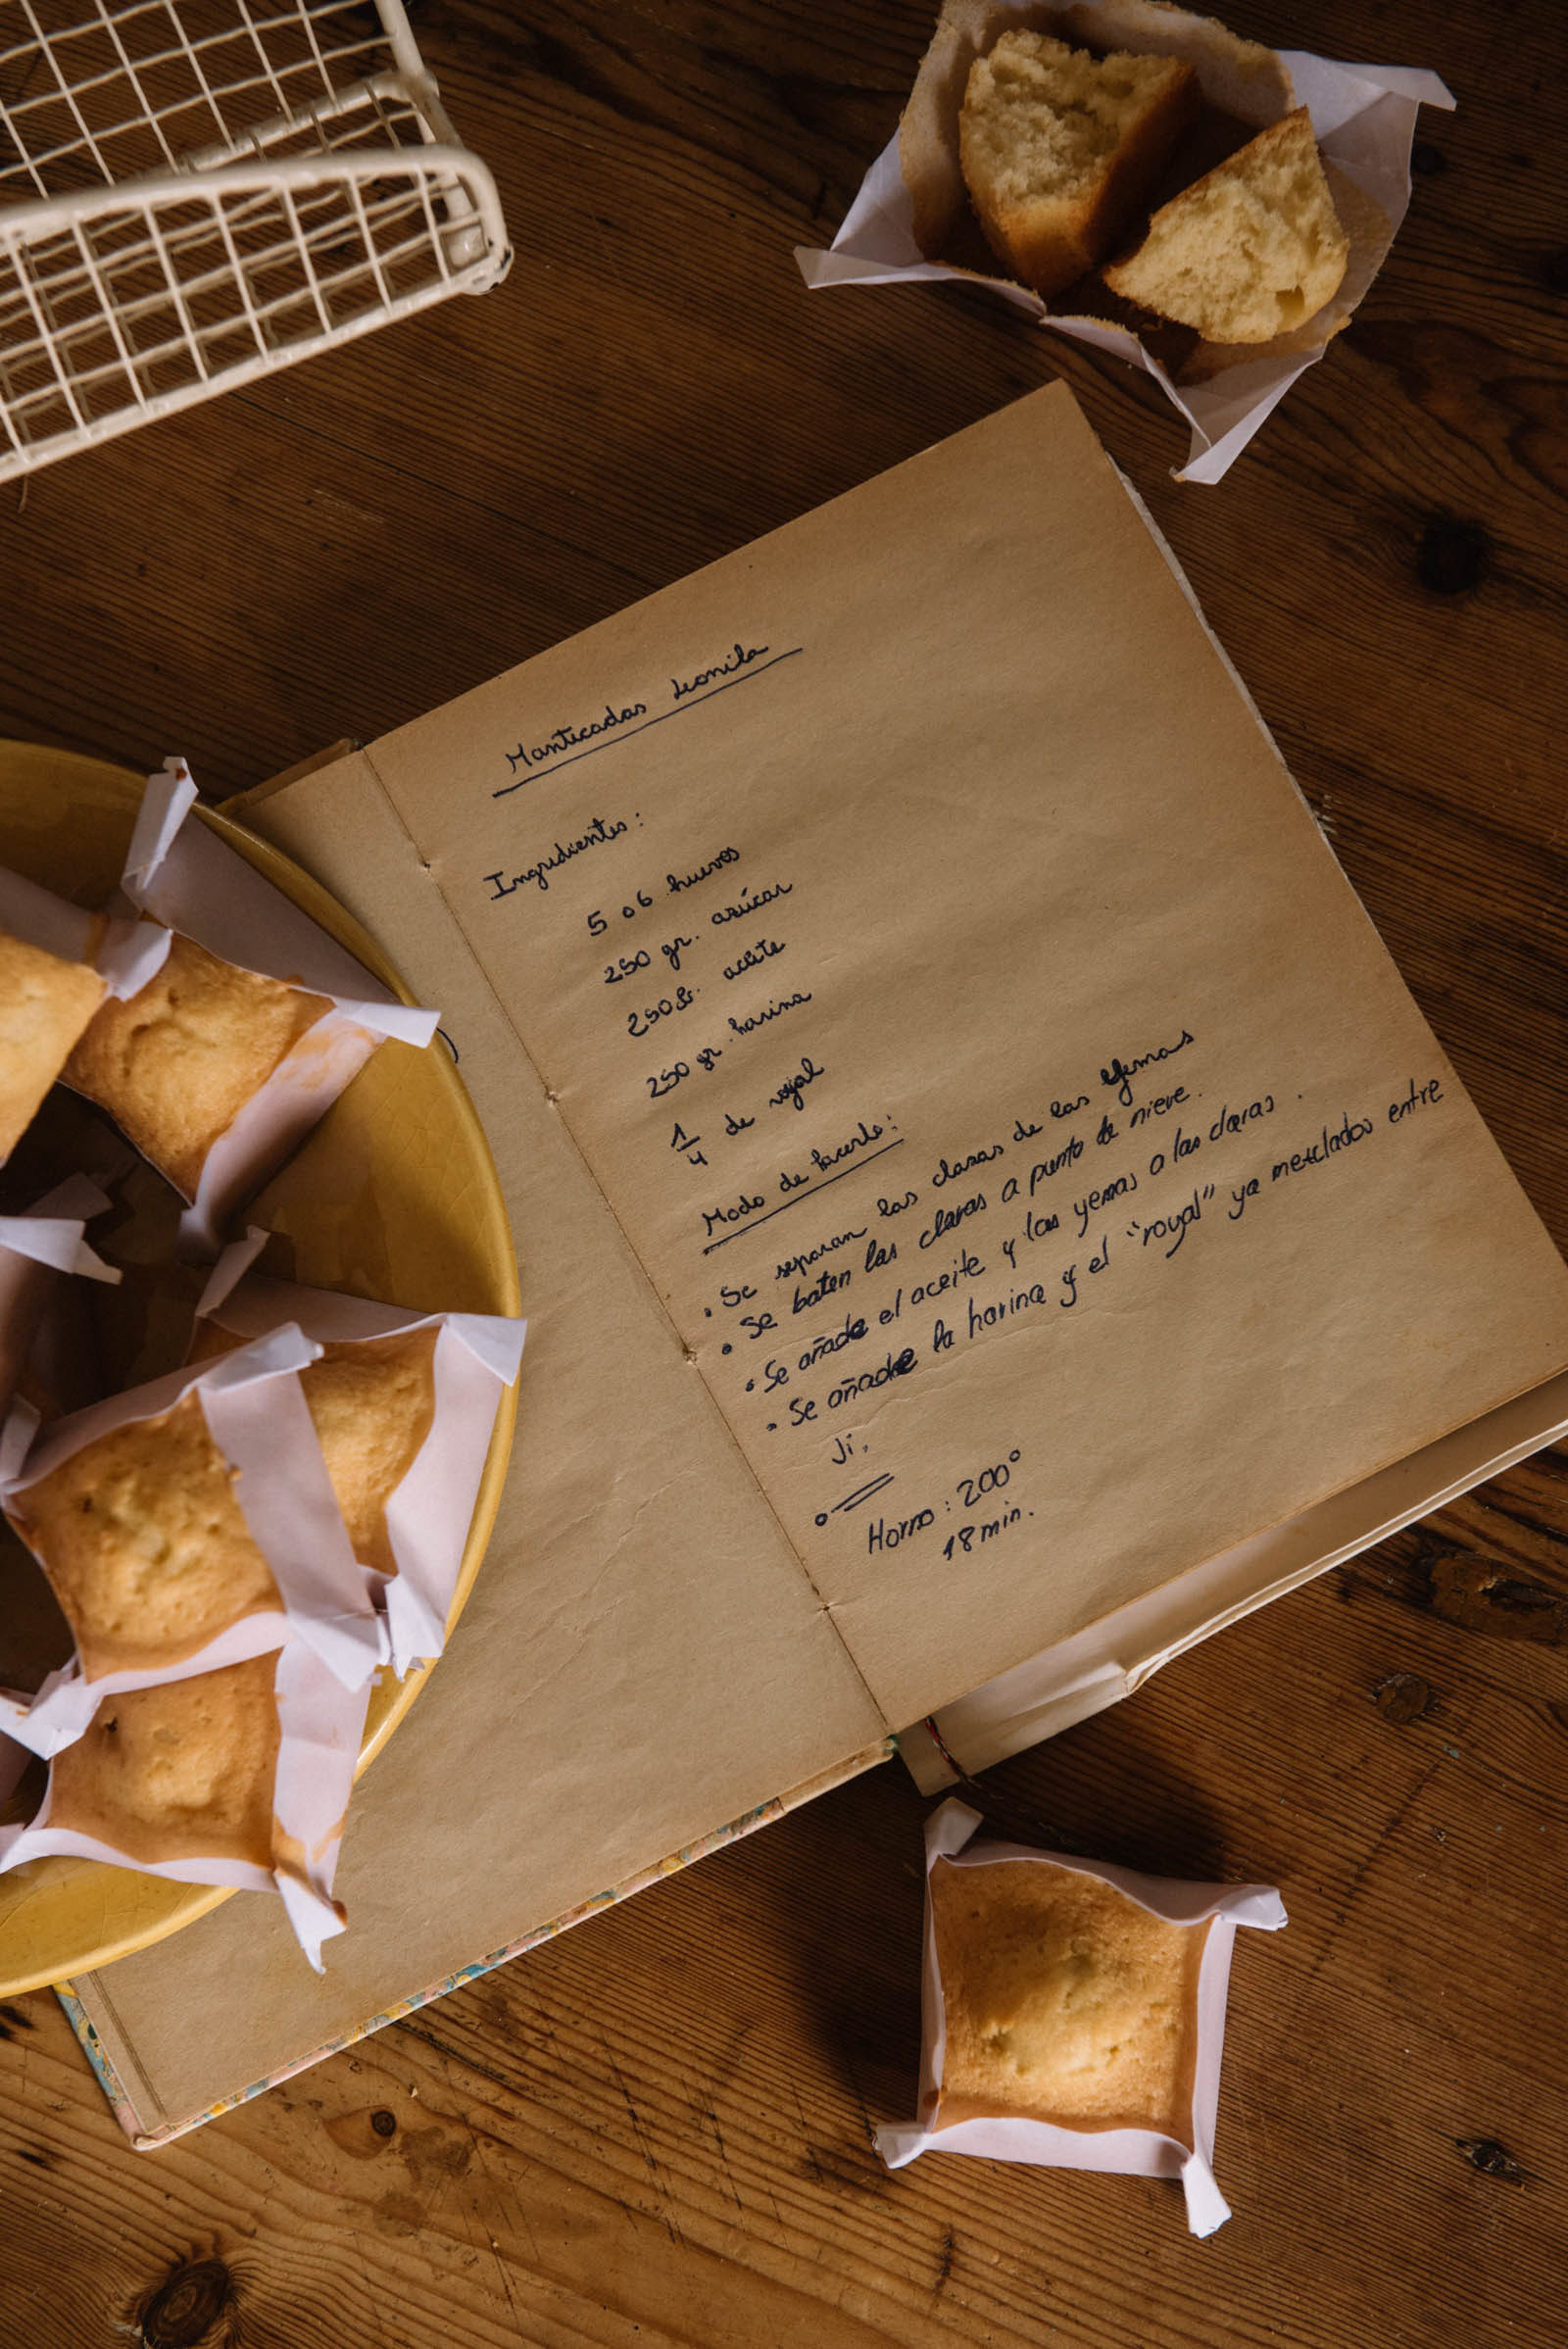 Manticadas Leonila
Ingredientes:
5 o 6 huevos
250 gr. azúcar
250 gr. aceite
250 gr. harina
1/4 de royal
Modo de hacerlo:
• Se separan las claras de las yemas
• Se baten las claras a punto de nieve.
• Se añade el aceite y las yemas a las claras.
• Se añade la harina y el "royal" ya mezclados entre
sí.
Horno: 200°
18 min.